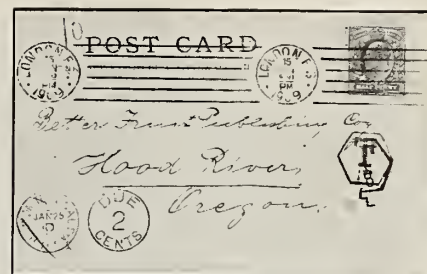 POST CARD
LONDON F.S.
15
PM
1909
LONDON F.S.
15
PM
1909
Better Fruit Publishing Co
Hood River,
Oregon.
T
JAN 25
DUE
2
CENTS